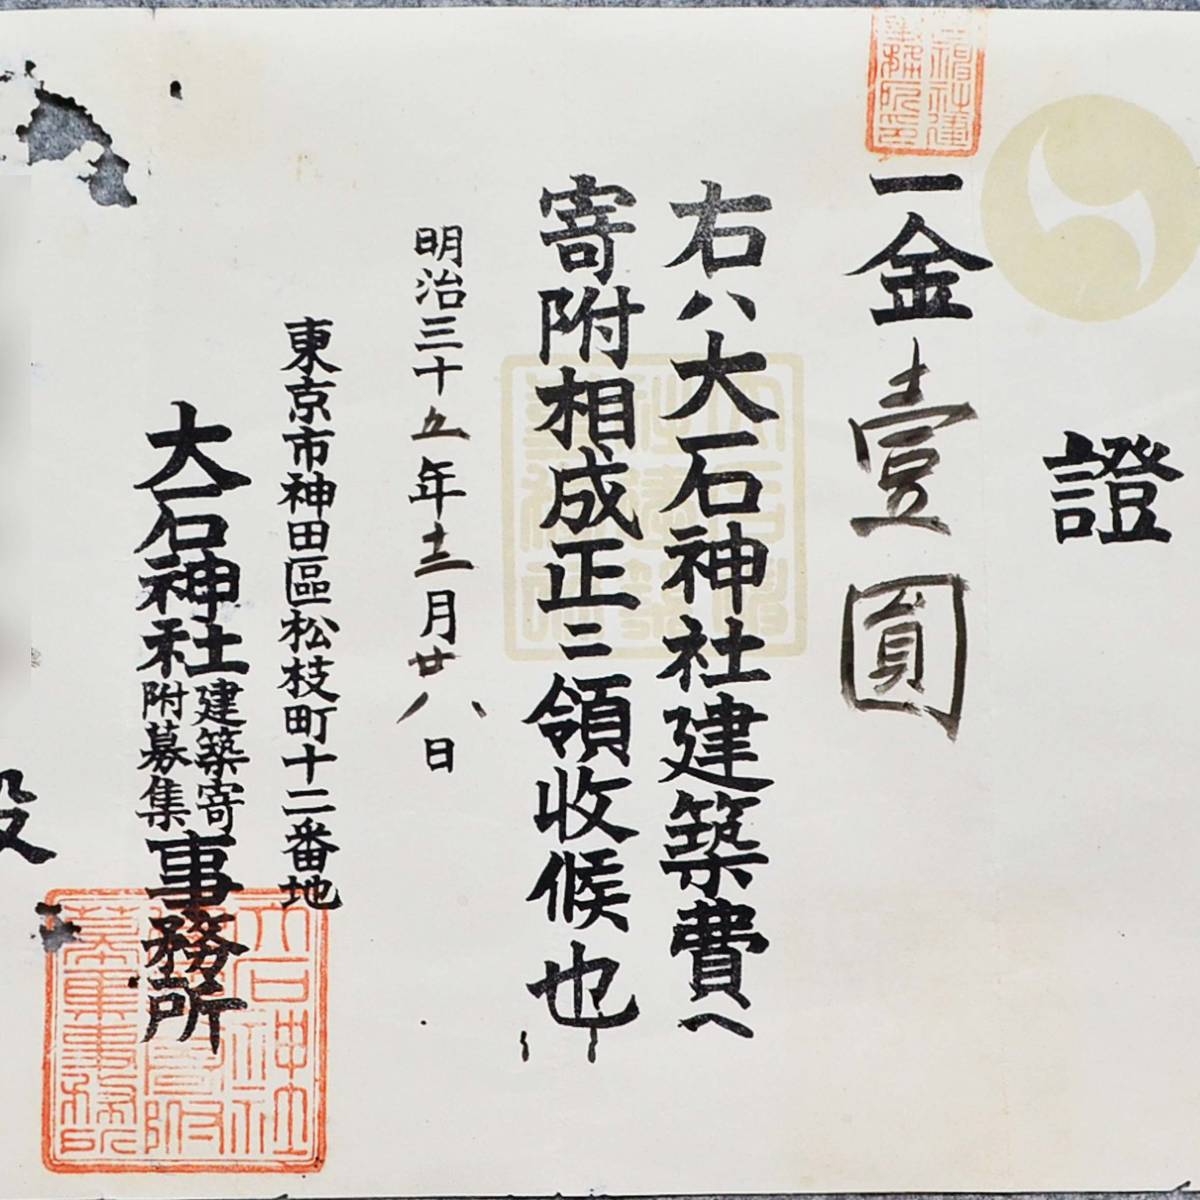 證
一金壹圓
右ハ大石神社建築費へ
寄附相成正ニ領收候也
明治三十五年十二月廿八日
東京市神田區松枝町十二番地
大石神社建築寄附募集事務所
殿
大石神社
建築寄附
募集事務所